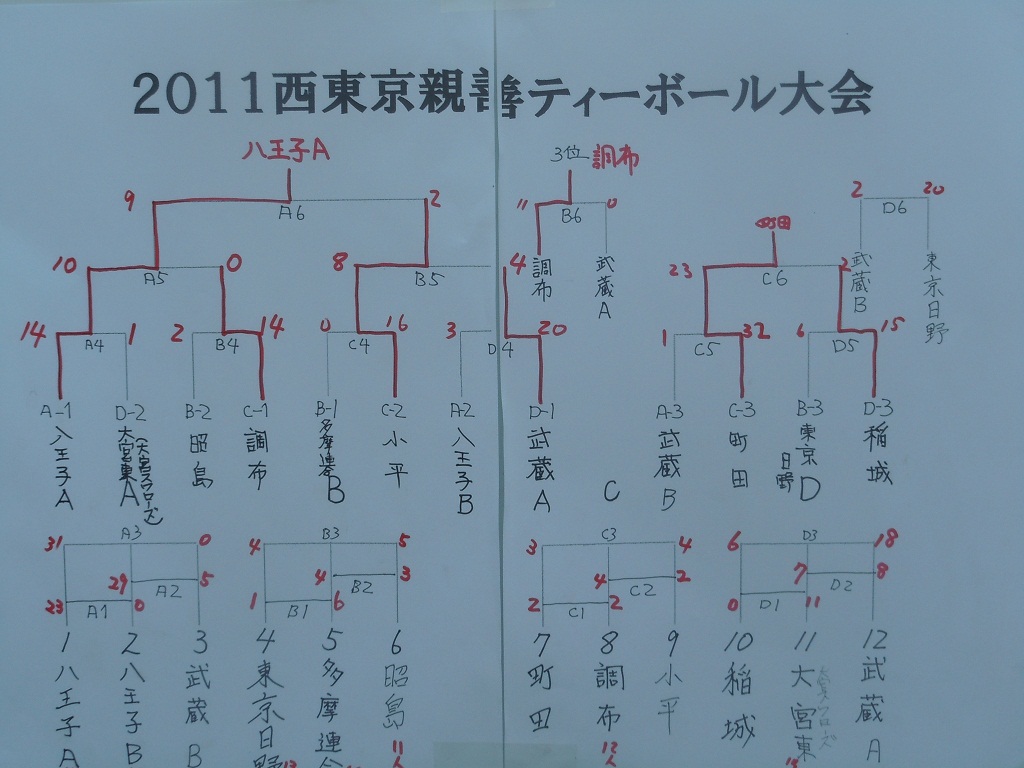 2011西東京親善ティーボール大会
八王子A
3位 調布
9 A6 2
11 B6 0
2 D6 20
町田
10 A5 0
8 B5 4
調布
武蔵A
23 C6 2
武蔵B
東京日野
14 A4 1
2 B4 14
0 C4 16
3 D4 20
1 C5 32
6 D5 15
A-1 D-2 B-2 C-1 B-1 C-2 A-2 D-1 A-3 C-3 B-3 D-3
八王子A
大宮東
昭島
調布
多摩連合
小平
八王子B
武蔵A
武蔵B
町田
東京日野
稲城
A B C D
31 A3 0
4 B3 5
3 C3 4
6 D3 18
29 A2 5
4 B2 3
4 C2 2
7 D2 8
23 A1 0
1 B1 6
2 C1 2
0 D1 11
1 2 3 4 5 6 7 8 9 10 11 12
八王子A
八王子B
武蔵B
東京日野
多摩連合
昭島
町田
調布
小平
稲城
大宮東
武蔵A
11人
12人